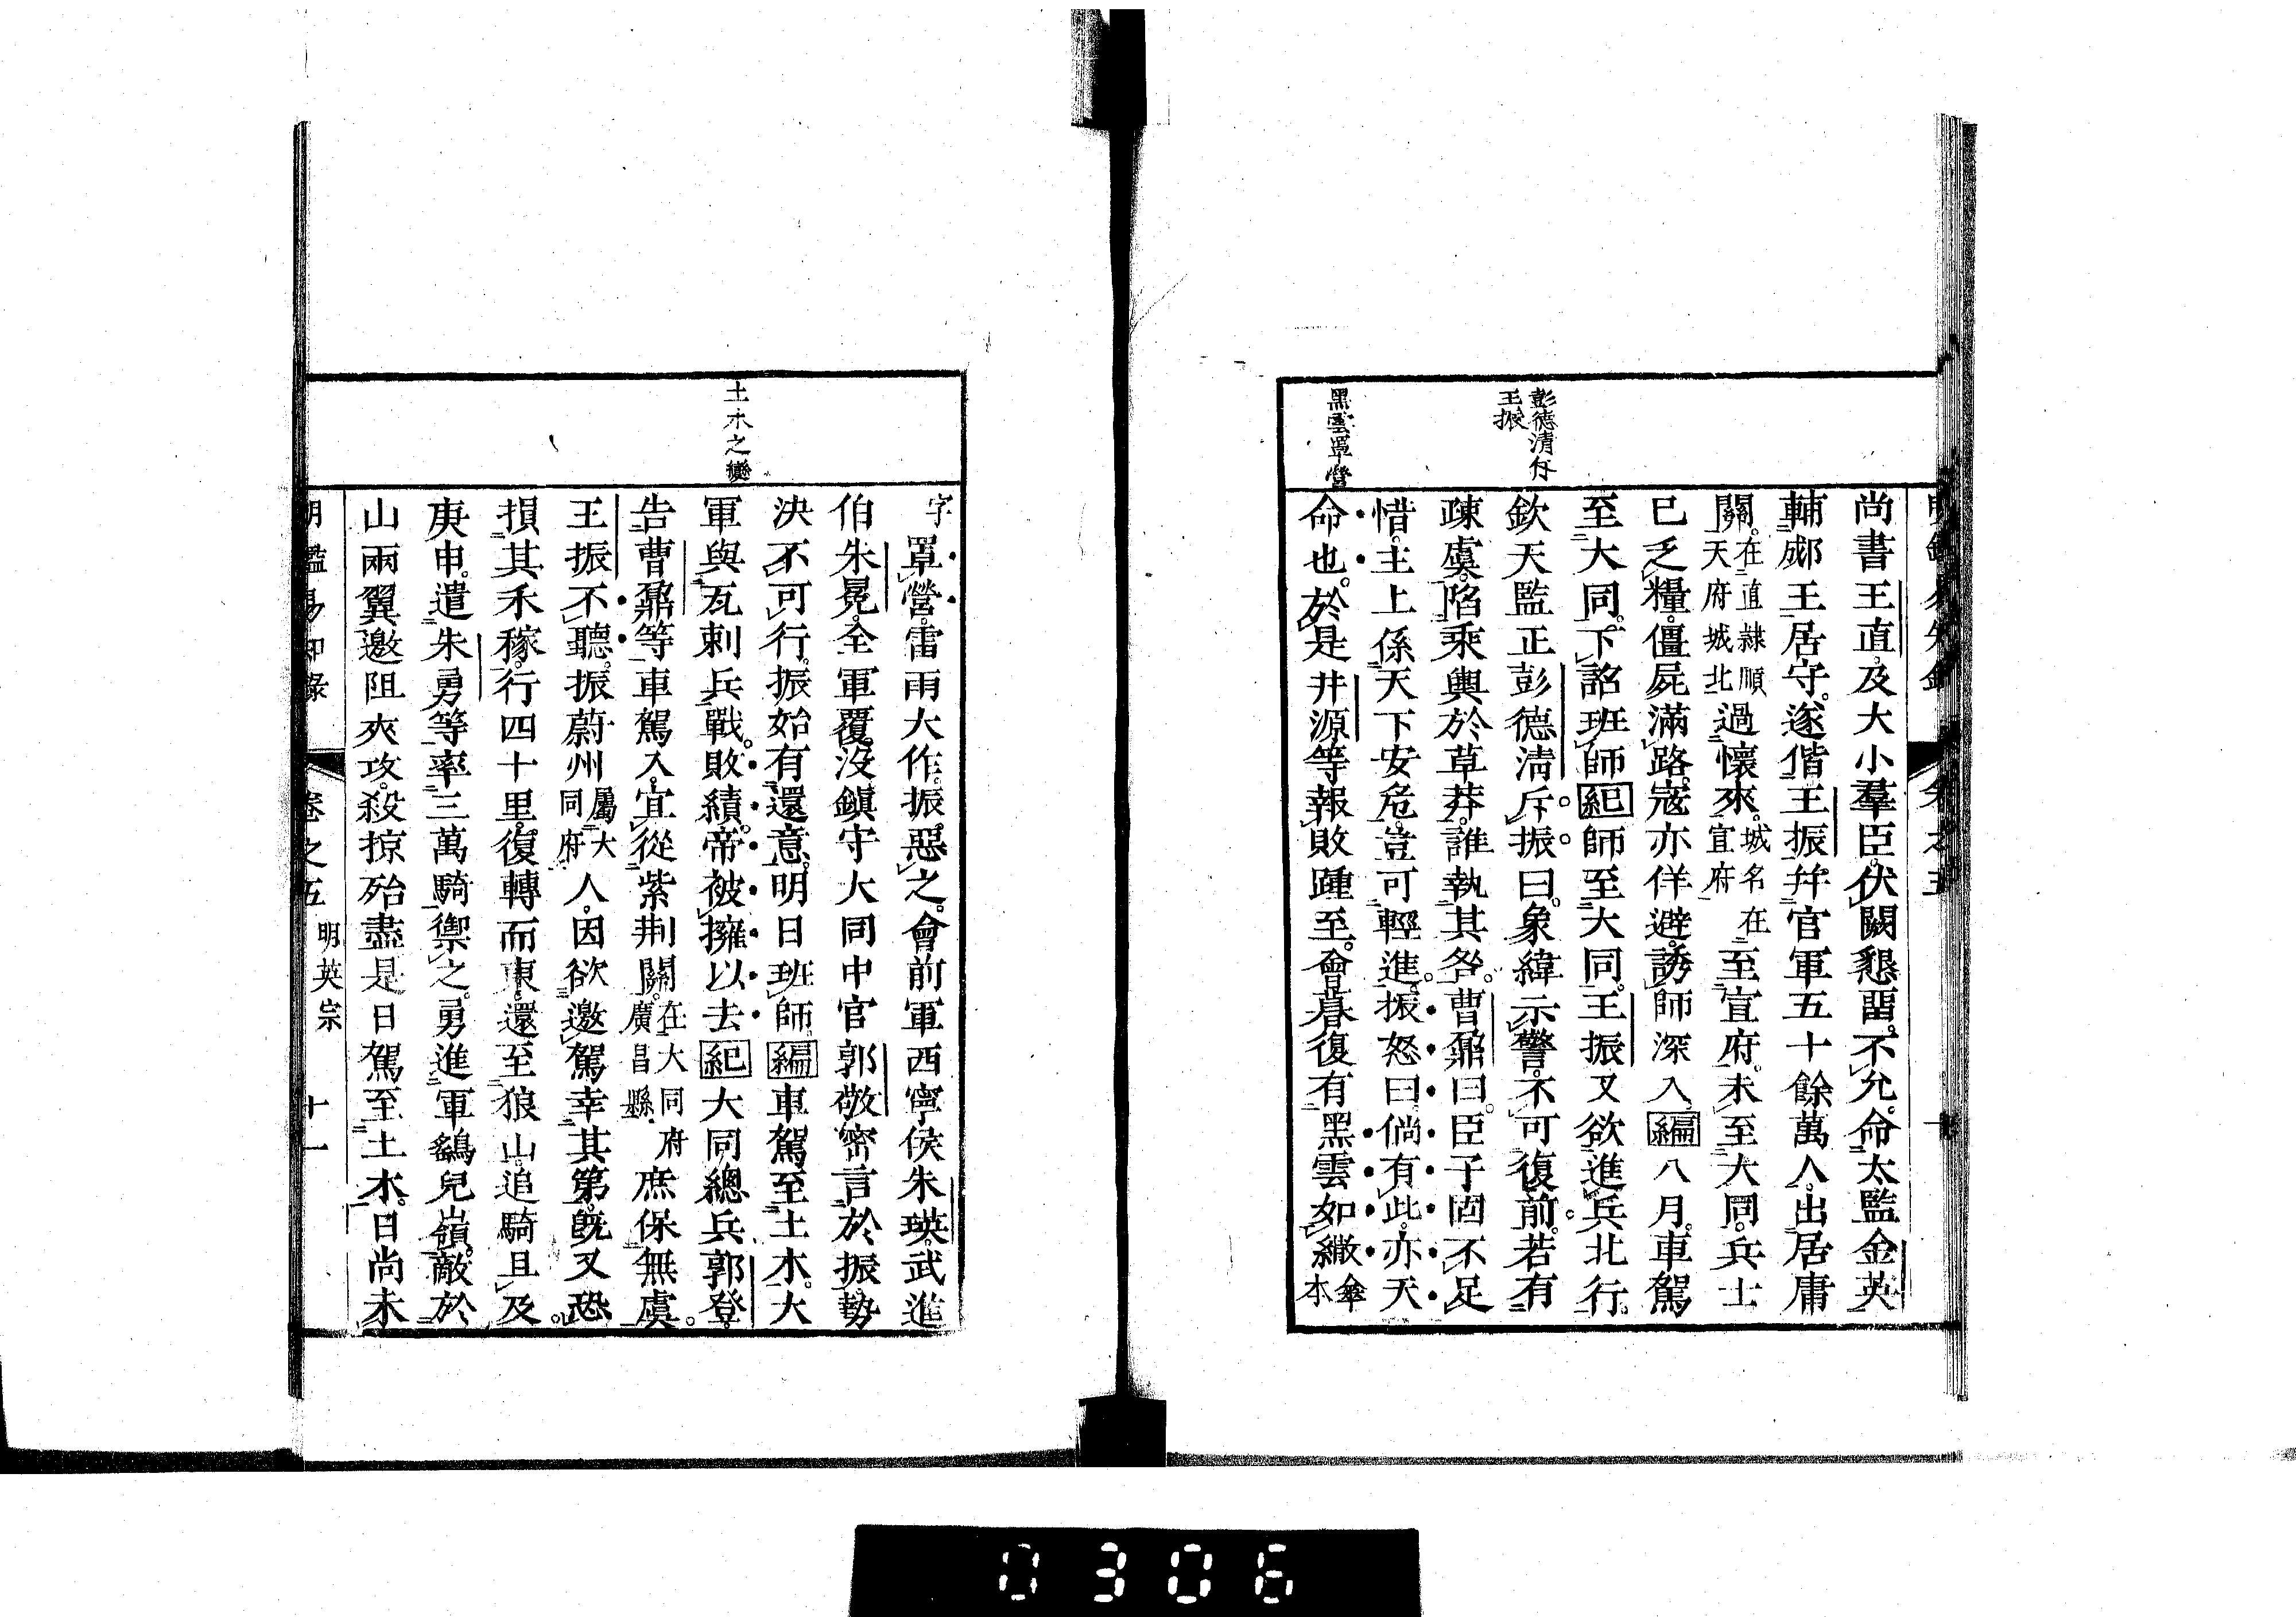 彭德清斥
王振
黑雲罩營
尚書王直及大小羣臣伏闕懇畱不允命太監金英
輔郕王居守遂偕王振幷官軍五十餘萬人出居庸
關在直隷順天府城北過懷來城名在宣府至宣府未至大同兵士
已乏糧僵屍滿路寇亦佯避誘師深入編八月車駕
至大同下詔班師紀師至大同王振又欲進兵北行
欽天監正彭德淸斥振曰象緯示警不可復前若有
疎虞陷乘輿於草莽誰執其咎曹鼐曰臣子固不足
惜主上係天下安危豈可輕進振怒曰倘有此亦天
命也於是井源等報敗踵至會暮復有黑雲如繖傘本
土木之變
字罩營雷雨大作振惡之會前軍西寧侯朱瑛武進
伯朱冕全軍覆沒鎭守大同中官郭敬密言於振勢
決不可行振始有還意明日班師編車駕至土木大
軍與瓦剌兵戰敗績帝被擁以去紀大同總兵郭登
告曹鼐等車駕入宜從紫荆關在大同府廣昌縣庶保無虞
王振不聽振蔚州屬大同府人因欲邀駕幸其第旣又恐
損其禾稼行四十里復轉而東還至狼山追騎且及
庚申遣朱勇等率三萬騎禦之勇進軍鷂兒嶺敵於
山兩翼邀阻夾攻殺掠殆盡是日駕至土木日尚未
明鑑易知錄 卷之五 明英宗 十一
0306